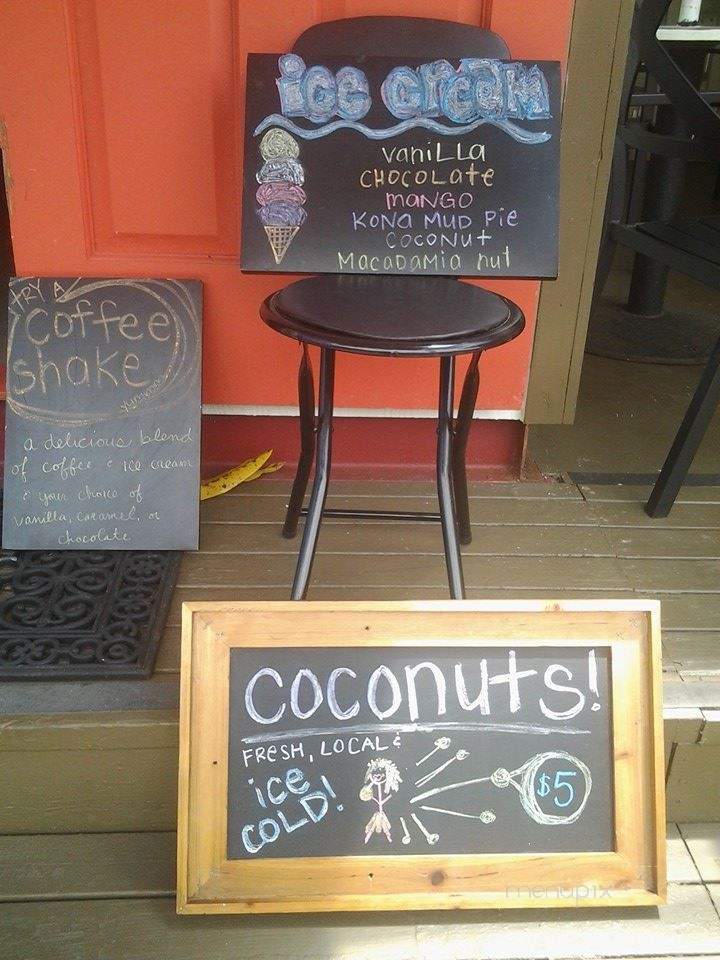 ice cream
vanilla
CHOCOLATE
MANGO
KONA MUD Pie
COCONUT
MACADAMIA nut
TRY A
Coffee
shake
yummm
a delicious blend
of coffee & ice cream
& your choice of
vanilla, caramel, or
chocolate
COCONUTS!
FRESH, LOCAL &
iCE
COLD!
$5
menupix